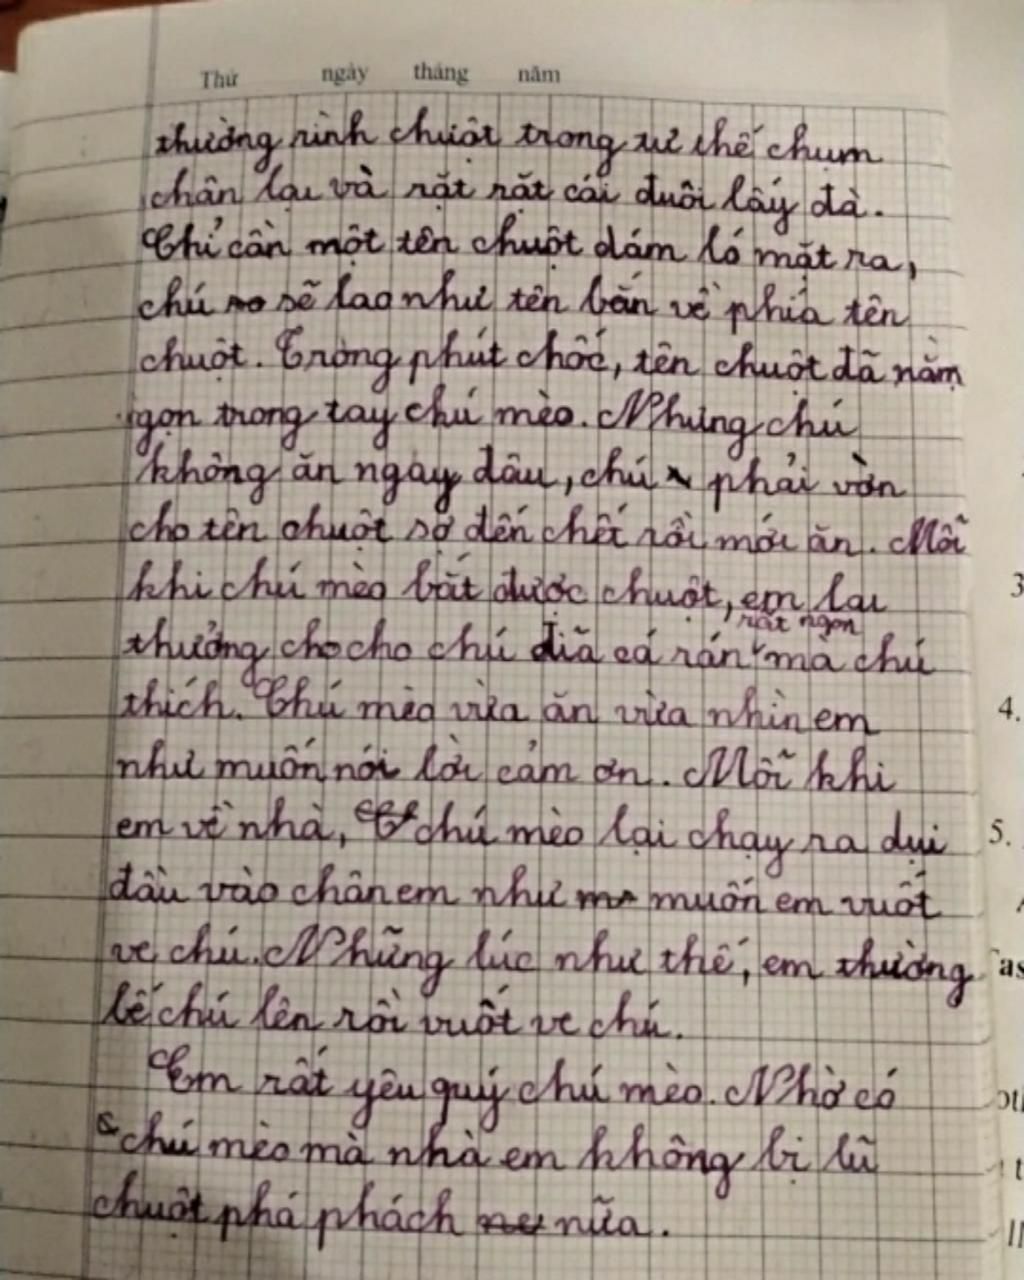 Thứ ngày tháng năm
thường rình chuột trong tư thế chụm
chân lại và rặt rặt cái đuôi lấy đà.
Chỉ cần một tên chuột dám ló mặt ra,
chú sẽ lao như tên bắn về phía tên
chuột. Trong phút chốc, tên chuột đã nằm
gọn trong tay chú mèo. Nhưng chú
không ăn ngay đâu, chú phải vờn
cho tên chuột sợ đến chết rồi mới ăn. Mỗi
khi chú mèo bắt được chuột, em lại
rất ngon
thưởng cho cho chú đĩa cá rán mà chú
thích. Chú mèo vừa ăn vừa nhìn em
như muốn nói lời cảm ơn. Mỗi khi
em về nhà, chú mèo lại chạy ra dụi
đầu vào chân em như muốn em vuốt
ve chú. Những lúc như thế, em thường
bế chú lên rồi vuốt ve chú.
Em rất yêu quý chú mèo. Nhờ có
chú mèo mà nhà em không bị lũ
chuột phá phách nữa.
3
4.
5.